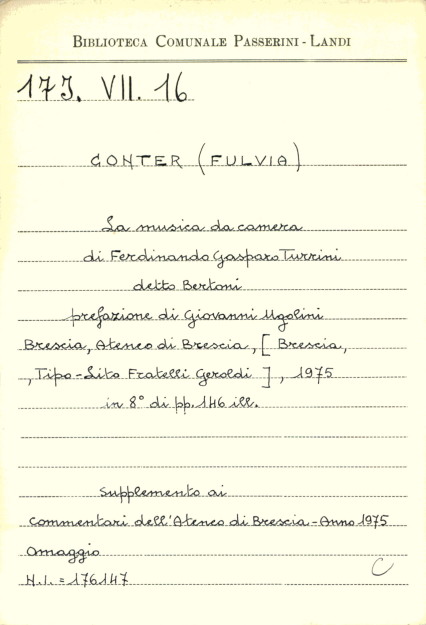 BIBLIOTECA COMUNALE PASSERINI - LANDI
17J. VII. 16
CONTER (FULVIA)
La musica da camera
di Ferdinando Gasparo Turrini
detto Bertoni
prefazione di Giovanni Ugolini
Brescia, Ateneo di Brescia, [ Brescia,
, Tipo-Lito Fratelli Geroldi ] , 1975
in 8° di pp. 146 ill.
Supplemento ai
Commentari dell'Ateneo di Brescia - Anno 1975
Omaggio
N.I. = 176147
C